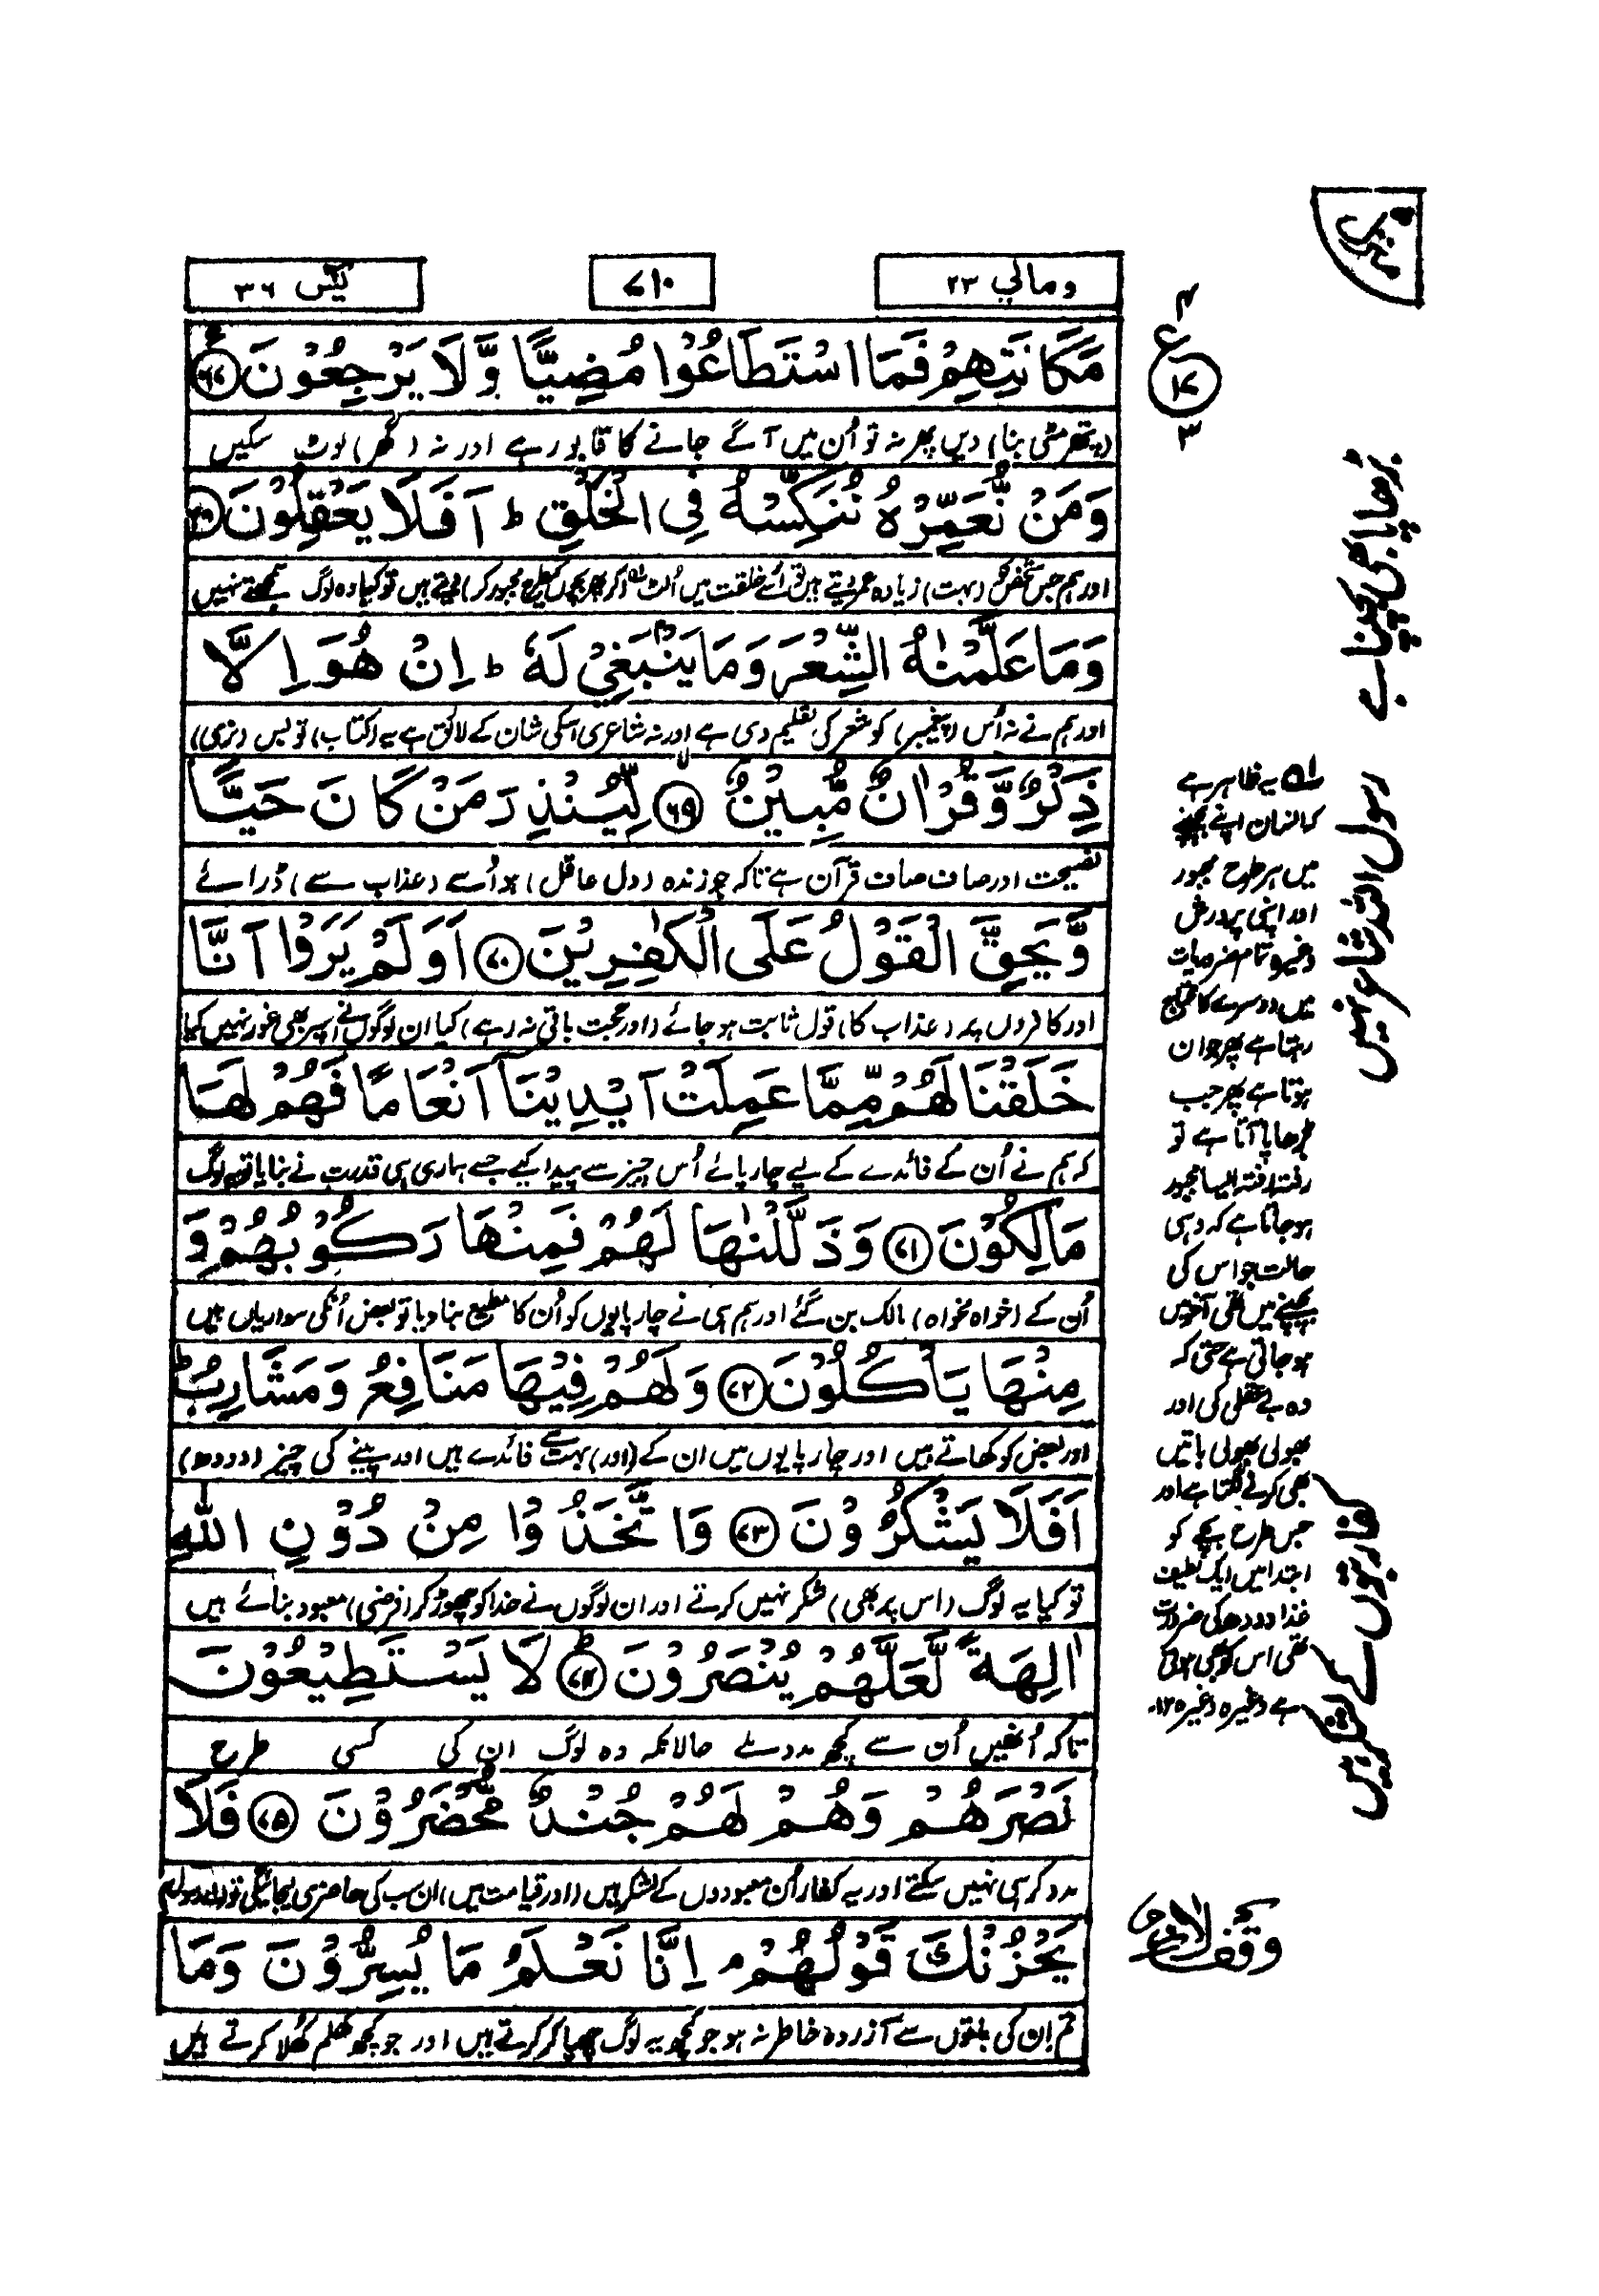 منزل ۵
ومالي ۲۳
۷۱۰
يٰسٓ ۳۶
مَكَانَتِهِمْ فَمَا اسْتَطَاعُوْا مُضِيًّا وَّلَا يَرْجِعُوْنَ ﴿۶۷﴾
(پتھر مٹی بنا) دیں پھر نہ تو اُن میں آگے جانے کا قابو رہے اور نہ (گھر) لوٹ سکیں
وَمَنْ نُّعَمِّرْهُ نُنَكِّسْهُ فِى الْخَلْقِ ؕ اَفَلَا يَعْقِلُوْنَ ﴿۶۸﴾
اور ہم جس شخص کو (بہت) زیادہ عمر دیتے ہیں تو اُسے خلقت میں اُلٹ کر پھر بچوں کی طرح مجبور کر) دیتے ہیں تو کیا وہ لوگ سمجھتے نہیں
وَمَا عَلَّمْنٰهُ الشِّعْرَ وَمَا يَنْۢبَغِىْ لَهٗ ؕ اِنْ هُوَ اِلَّا
اور ہم نے نہ اُس (پیغمبر) کو شعر کی تعلیم دی ہے اور نہ شاعری اسکی شان کے لائق ہے یہ (کتاب) تو بس (نری)
ذِكْرٌ وَّقُرْاٰنٌ مُّبِيْنٌ ﴿۶۹﴾ لِّيُنْذِرَ مَنْ كَانَ حَيًّا
نصیحت اور صاف صاف قرآن ہے تاکہ جو زندہ (دل عاقل) ہو اُسے (عذاب سے) ڈرائے
وَّيَحِقَّ الْقَوْلُ عَلَى الْكٰفِرِيْنَ ﴿۷۰﴾ اَوَلَمْ يَرَوْا اَنَّا
اور کافروں پر (عذاب کا) قول ثابت ہو جائے (اور حجت باقی نہ رہے) کیا ان لوگوں نے اسپر بھی غور نہیں کیا
خَلَقْنَا لَهُمْ مِّمَّا عَمِلَتْ اَيْدِيْنَآ اَنْعَامًا فَهُمْ لَهَا
کہ ہم نے اُن کے فائدے کے لیے چارپائے اُس چیز سے پیدا کیے جسے ہماری ہی قدرت نے بنایا تو یہ لوگ
مَالِكُوْنَ ﴿۷۱﴾ وَذَلَّلْنٰهَا لَهُمْ فَمِنْهَا رَكُوْبُهُمْ وَ
اُن کے (خواہ مخواہ) مالک بن گئے اور ہم ہی نے چارپایوں کو اُن کا مطیع بنا دیا تو بعض اُنکی سواریاں ہیں
مِنْهَا يَاْكُلُوْنَ ﴿۷۲﴾ وَلَهُمْ فِيْهَا مَنَافِعُ وَمَشَارِبُ ؕ
اور بعض کو کھاتے ہیں اور چارپایوں میں ان کے (اور) بہت سے فائدے ہیں اور پینے کی چیز (دودھ)
اَفَلَا يَشْكُرُوْنَ ﴿۷۳﴾ وَاتَّخَذُوْا مِنْ دُوْنِ اللّٰهِ
تو کیا یہ لوگ (اس پر بھی) شکر نہیں کرتے اور ان لوگوں نے خدا کو چھوڑ کر (فرضی) معبود بنائے ہیں
اٰلِهَةً لَّعَلَّهُمْ يُنْصَرُوْنَ ﴿۷۴﴾ؕ لَا يَسْتَطِيْعُوْنَ
تاکہ اُنھیں اُن سے کچھ مدد ملے حالانکہ وہ لوگ ان کی کسی طرح
نَصْرَهُمْ وَهُمْ لَهُمْ جُنْدٌ مُّحْضَرُوْنَ ﴿۷۵﴾ فَلَا
مدد کر ہی نہیں سکتے اور یہ کفار اُن معبودوں کے لشکر ہیں (اور قیامت میں) ان سب کی حاضری لیجائیگی تو (اے رسول) تم
يَحْزُنْكَ قَوْلُهُمْ ۘ اِنَّا نَعْلَمُ مَا يُسِرُّوْنَ وَمَا
تم اِن کی باتوں سے آزردہ خاطر نہ ہو جو کچھ یہ لوگ چھپا کر کرتے ہیں اور جو کچھ کھلم کھلا کرتے ہیں
۴
ع
۱۷
۳
بڑھاپا بھی بچپنا ہے
رسول اللہ شاعر نہیں
کفار بتوں کے لشکر ہیں
۵۱ یہ ظاہر ہے
کہ انسان اپنے بچپنے
میں ہر طرح مجبور
اور اپنی پرورش
وغیرہ تمام ضروریات
میں دوسرے کا محتاج
رہتا ہے پھر جوان
ہوتا ہے پھر جب
بڑھاپا آتا ہے تو
رفتہ رفتہ ایسا مجبور
ہو جاتا ہے کہ وہی
حالت جو اس کی
بچپنے میں تھی آخر میں
ہو جاتی ہے حتی کہ
وہ بے عقلی کی اور
بھولی بھولی باتیں
بھی کرنے لگتا ہے اور
جس طرح بچے کو
ابتدا میں ایک لطیف
غذا دودھ کی ضرورت
تھی اس کو بھی ہوتی
ہے وغیرہ وغیرہ ۱۲۔
وقف لازم